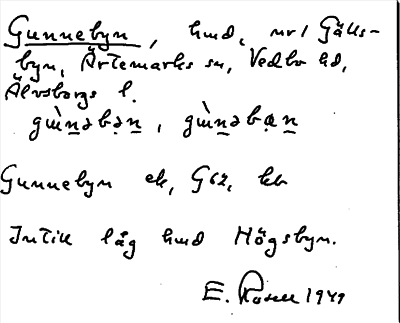 Gunnebyn, hmd, nr 1 Gälls-
byn, Ärtemarks sn, Vedbo hd,
Älvsborgs l.
gɯ̀n̲əbən̲, gɯ̀n̲əbạn̲
Gunnebyn ek, G62, kb
Intill låg hmd Högsbyn.
E. Rosell 1949